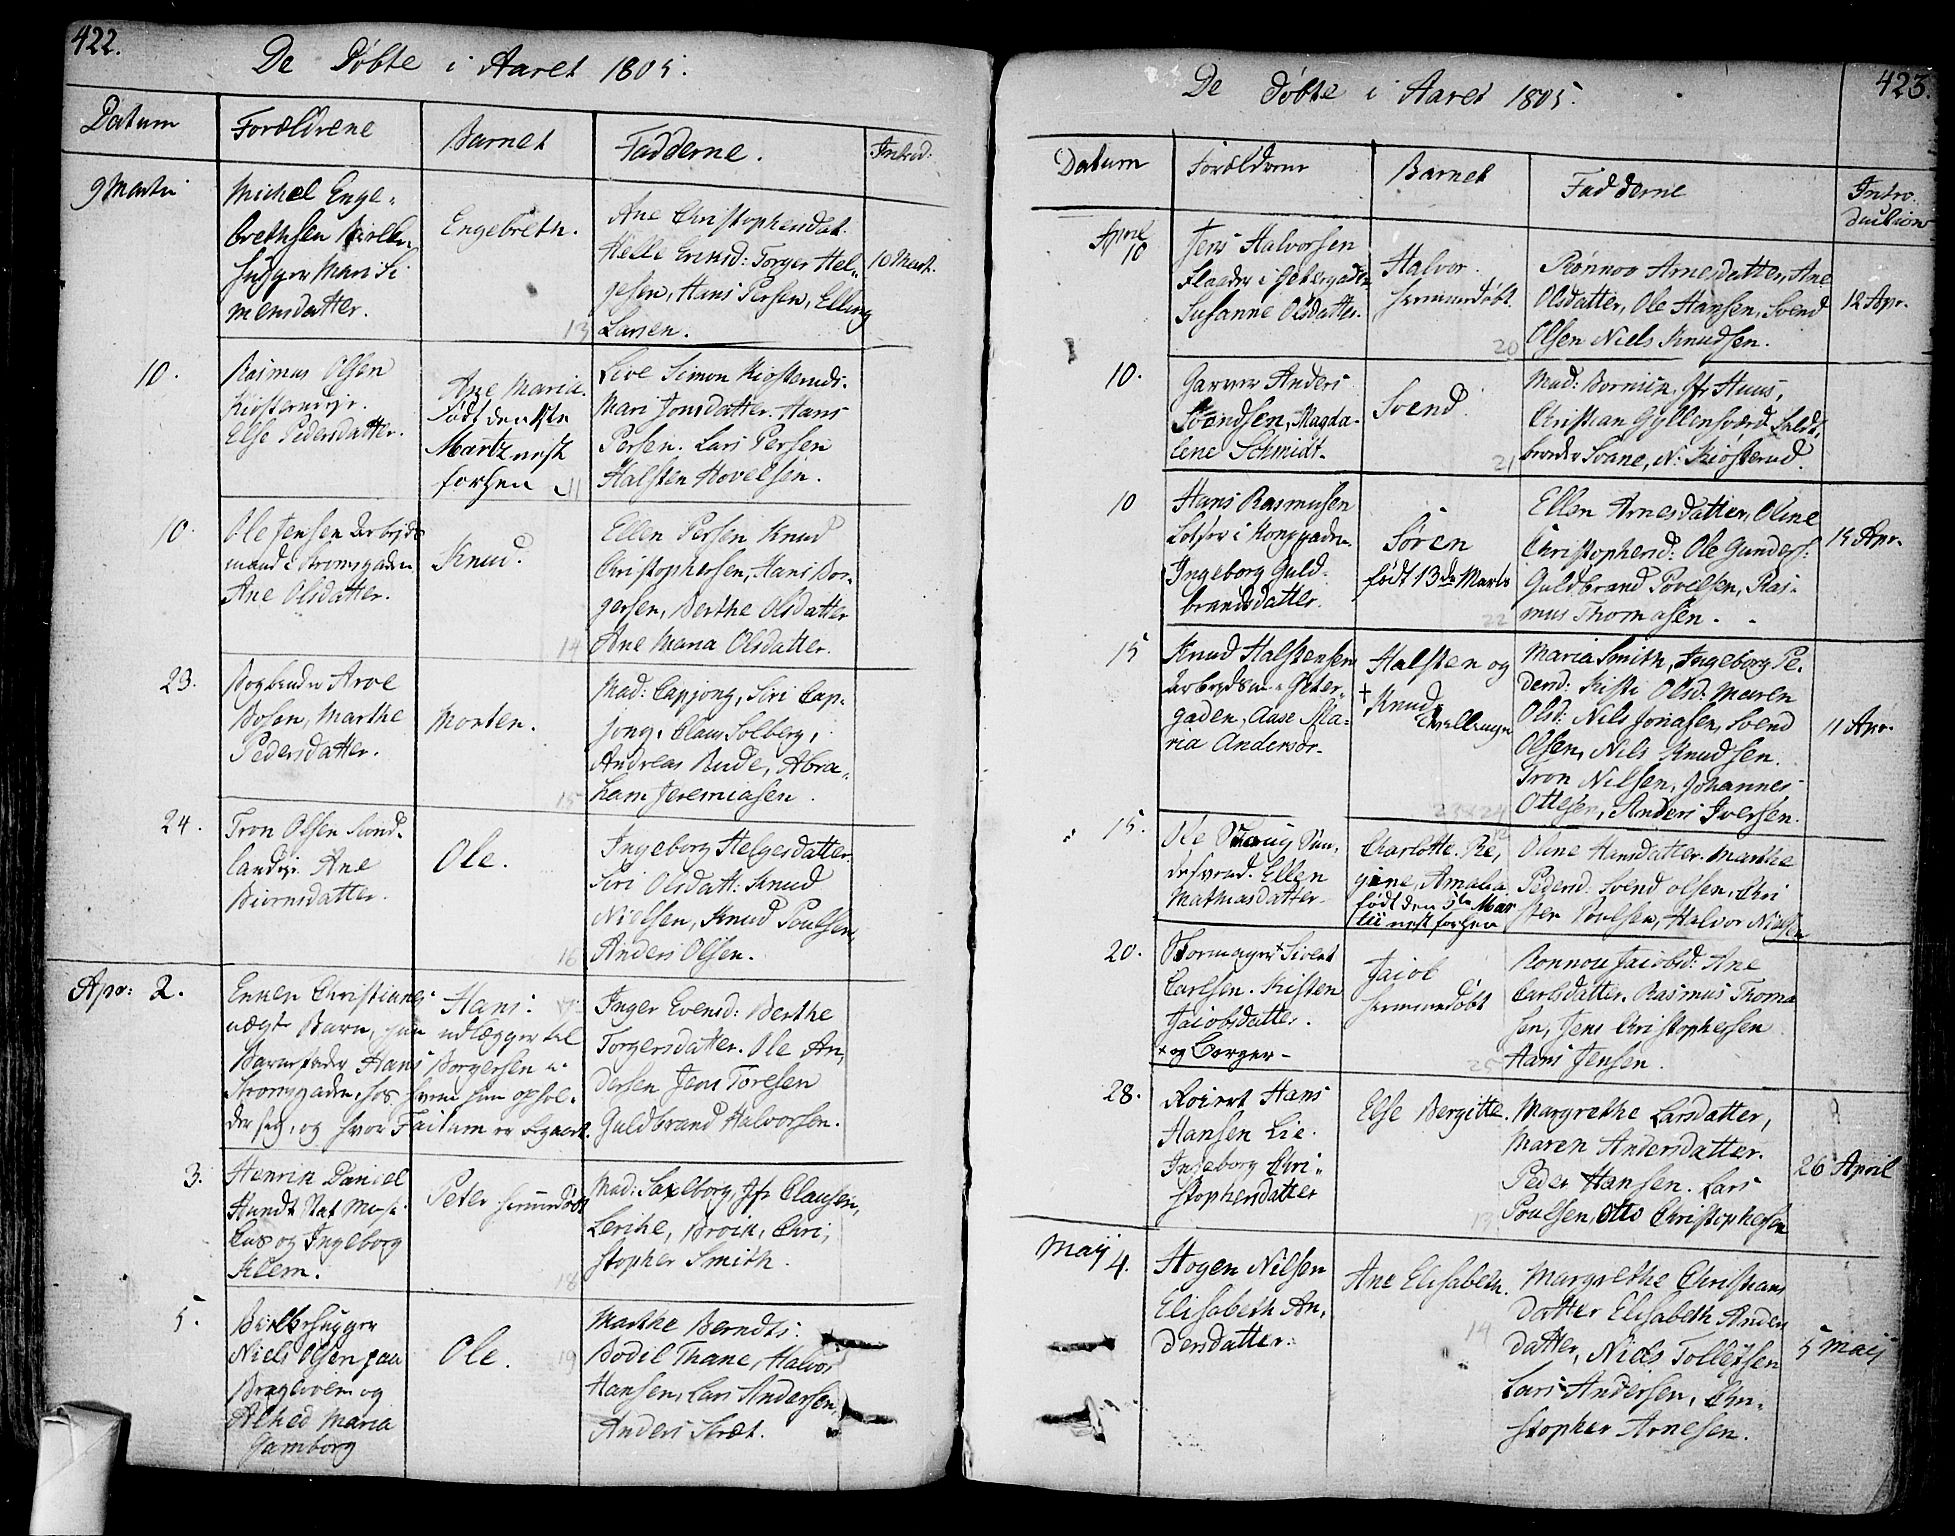 422.
De Døbte i Aaret 1805.
Datum
Forældrene
Barnet
Fadderne.
Introd:
9 Martii
Michel Enge-
brethsen
hugger Mari Si
mensdatter.
Engebreth.
Ane Christophersdat.
Helle Ericsd: Torger Hel-
gesen, Hans Persen, Elling
Larsen.
13
10 Mart.
10.
Rasmus Olsen
Kiøsterudejr.
Else Pedersdatter.
Ane Maria.
Født den
Martz nest
forhen
11
Live Simon Kiøsteruds.
Mari Jonsdatter. Hans
Persen. Lars Persen
Halsten Hovelsen.
10.
Ole Jensen Arbejds
mand i Strømsgaden
Ane Olsdatter.
Knud.
Ellen Persen Knud
Christophersen, Hans Bor-
gersen, Berthe Olsdatter
Ane Maria Olsdatter.
14
23.
Bogbinder Arve
Bosen, Marthe
Pedersdatter.
Morten.
Mad: Capjong, Siri Cap-
jong, Claus Solberg,
Andreas Rude, Abra-
ham Jeremiasen.
15
24.
Tron Olsen Sund-
landejr. Ane
Biørnsdatter.
Ole.
Ingeborg Helgesdatter
Siri Olsdatt: Knud
Nielsen, Knud Poulsen,
Anders Olsen.
16
Apr: 2.
Enken Christianes
uægte Barn, hun udlægger til
Barnefader Hans Borgersen i
Strømsgaden, hos hvem hun ophol-
der sig, og hvor Factum er
Hans.
Inger Evensd: Berthe
Torgersdatter. Ole An-
dersen Jens Toresen
Guldbrand Halvorsen.
3.
Henrik Daniel
Hundt Stat Mosi-
cus og Ingeborg
Klem.
Peter hiemmedøbt
Mad: Saxeborg, Jfr Clausen,
Lerche, Broch, Chri-
stopher Smith.
18
5.
Bielkehugger
Niels Olsen paa
Bragernæs og
Alhed Maria
Jamborg
Ole.
19
Marthe Berndts.
Bodil Thane, Halvor
Hansen, Lars Andersen,
Anders Stræt.
423.
De Døbte i Aaret 1805.
Datum
Forældrene
Barnet
Fadderne
Intro
duction
April
10
Jens Halvorsen
Flaader i Petersgaden
Susanne Olsdatter.
Halvor.
hiemmedøbt.
20
Rønnov Arnesdatter, Ane
Olsdatter, Ole Hansen, Svend
Olsen Niels Knudsen.
12 Apr.
10.
Garver Anders
Svendsen, Magda-
lene Schmidt.
Svend.
21
Mad: Bornich, Jfr Huus,
Christian Gyllensværd
Svane, N: Kiøsterud.
10
Hans Rasmusen
Lodser i Konggaden
Ingeborg Guld-
brandsdatter.
Søren
født 13de Marts
22
Ellen Arnesdatter, Oline
Christophersd: Ole Gunders:
Guldbrand Povelsen, Ras-
mus Thomasen.
15 Apr.
15
Knud Halstensen
Arbejdsm i Peter-
gaden, Aase Ma-
ria Andersdr.
Halsten og
+
Knud,
Tvillinger
23 & 24
Maria Smith, Ingeborg Pe-
dersd: Kisti Olsd: Maren
Olsd: Nils Jonasen, Svend
Olsen, Nils Knudsen.
Tron Nilsen, Johannes
Ottesen, Anders Iversen.
11 Apr.
15.
Ole
Ellen
Mathiasdatter.
Charlotte. Re-
gine, Amalia
født den 5te Mar
tii nest forhen
12
Oline Hansdatter. Marthe
Pedersd: Svend Olsen, Chri
sten Poulsen, Halvor Nielsen
20.
Formager + Sivert
Carlsen. Kisten
Jacobsdatter.
+ og Borger-
Jacob
hiemmedøbt
25
Ronnov Jacobsd: Ane
Carlsdatter. Rasmus Thoma
sen, Jens Christophersen
Hans Jensen.
28.
Roiert Hans
Hansen Lie.
Ingeborg Chri-
stophersdatter
Else Bergitte.
13
Margrethe Larsdatter,
Maren Andersdatter.
Peder Hansen. Lars
Poulsen, Otto Christophersen
26 April
Maij
4.
Hogen Nilsen
Elisabeth An-
dersdatter.
Ane Elisabeth.
14
Margrethe Christians
datter Elisabeth Anders
datter, Niels Tollefsen
Lars Andersen, Chri-
stopher Arnesen.
5 Maij